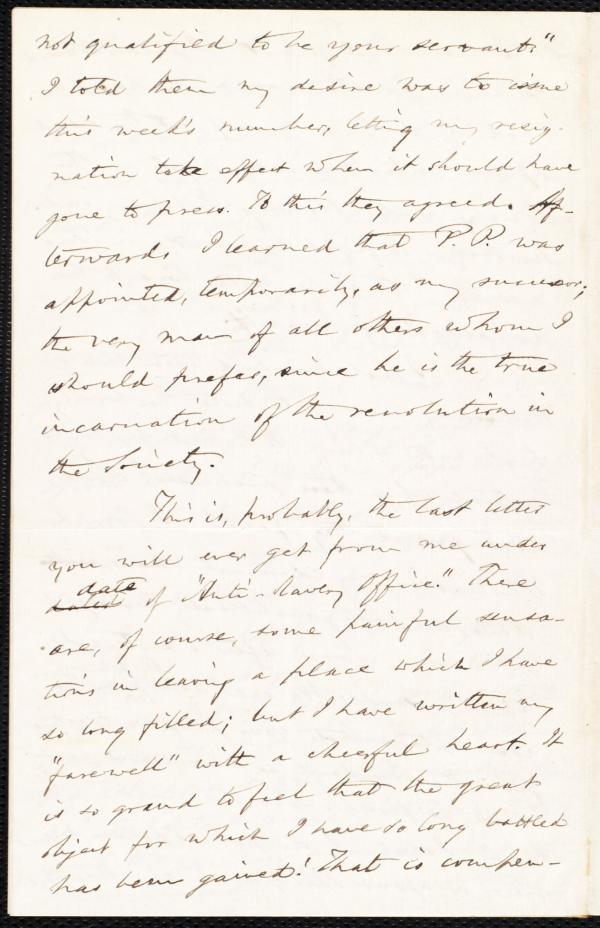 not qualified to be your servants."
I told them my desire was to issue
this week's number, letting my resig-
nation take effect when it should have
gone to press. To this they agreed. Af-
terwards I learned that P. P. was
appointed, temporarily, as my successor;
the very man of all others whom I
should prefer, since he is the true
incarnation of the revolution in
the Society.
This is, probably, the last letter
you will ever get from me under
date of "Anti-Slavery Office." There
are, of course, some painful sensa-
tions in leaving a place which I have
so long filled; but I have written my
"farewell" with a cheerful heart. It
is so grand to feel that the great
object for which I have so long battled
has been gained! That is compen-